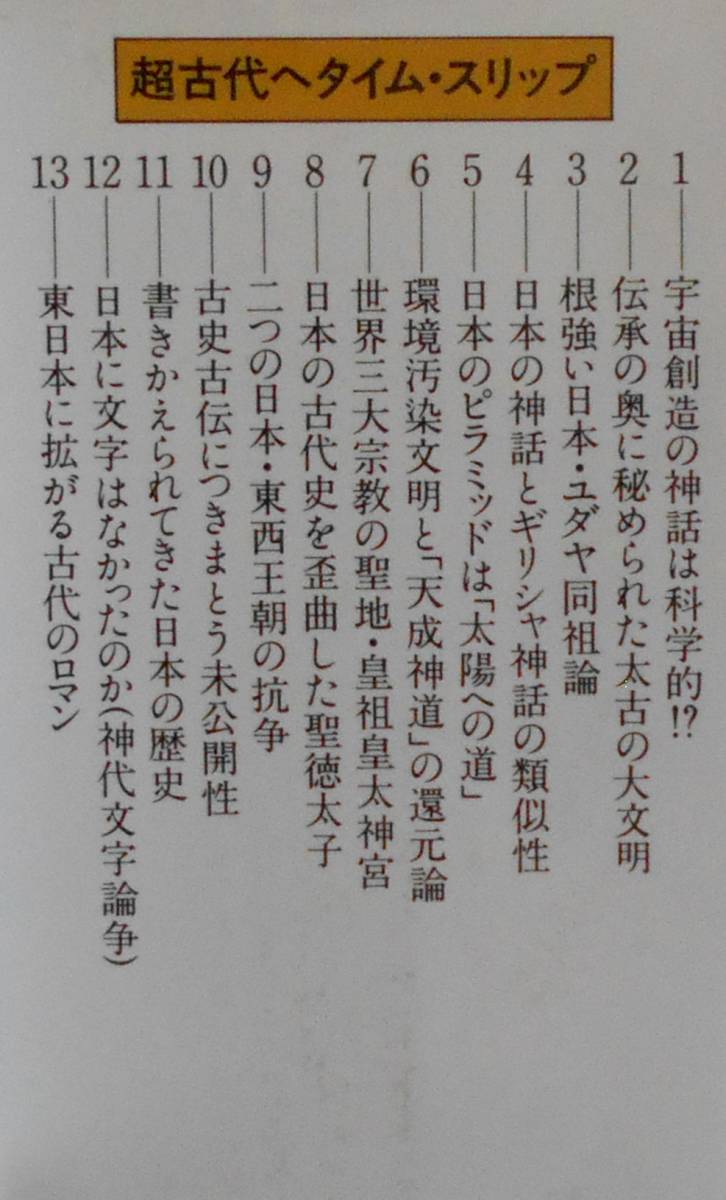 超古代へタイム・スリップ
1——宇宙創造の神話は科学的!?
2——伝承の奥に秘められた太古の大文明
3——根強い日本・ユダヤ同祖論
4——日本の神話とギリシャ神話の類似性
5——日本のピラミッドは「太陽への道」
6——環境汚染文明と「天成神道」の還元論
7——世界三大宗教の聖地・皇祖皇太神宮
8——日本の古代史を歪曲した聖徳太子
9——二つの日本・東西王朝の抗争
10——古史古伝につきまとう未公開性
11——書きかえられてきた日本の歴史
12——日本に文字はなかったのか(神代文字論争)
13——東日本に拡がる古代のロマン